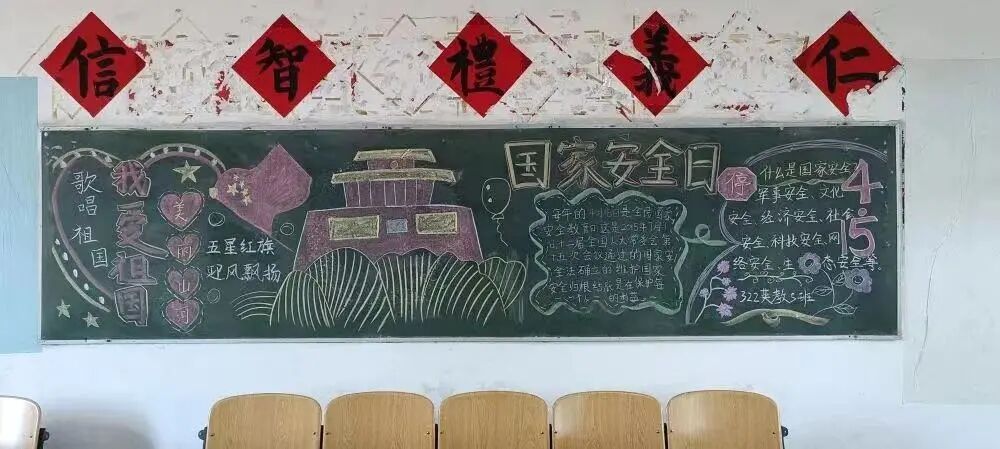 信 智 禮 義 仁
歌唱祖国
我爱祖国
美丽山河
五星红旗
迎风飘扬
国家安全日
每年的4月15日是全民国家
安全教育日这是2015年7月1
日十二届全国人大常委会第
十五次会议通过的国家安
全法确立的维护国家
安全归根结底是在保护每
一个人的利益
什么是国家安全
军事安全、文化
安全、经济安全、社会
安全、科技安全、网
络安全、生态安全等.
4
15
322英教5班